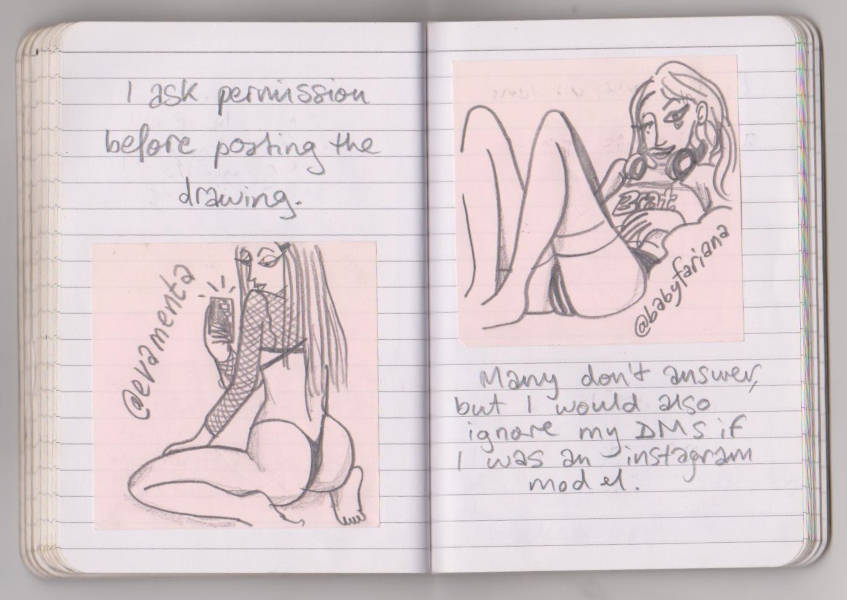 I ask permission
before posting the
drawing.
@evamenta
Brat
@babyfariana
Many don't answer,
but I would also
ignore my DMs if
I was an instagram
model.